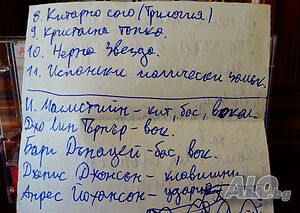 8. Китарно соло (Трилогия)
9. Кристална топка.
10. Черна звезда.
11. Испански готически замък.
И. Малмстийн - кит, бас, вокал.
Джо Лин Търнър - вок.
Бари Дънауей - бас, вок.
Йенс Йохансон - клавишни
Андрес Йохансон - ударни
ALO.bg